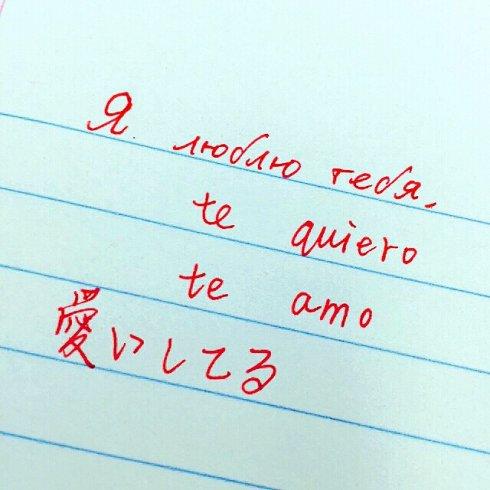 Я люблю тебя.
te quiero
te amo
愛いしてる